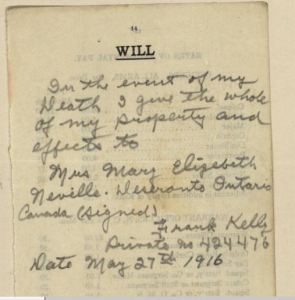 14
WILL
In the event of my
Death I give the whole
of my property and
effects to
Mrs Mary Elizabeth
Neville. Deseronto Ontario
Canada (Signed)
Frank Kelly
Private No 424476
Date May 27th 1916